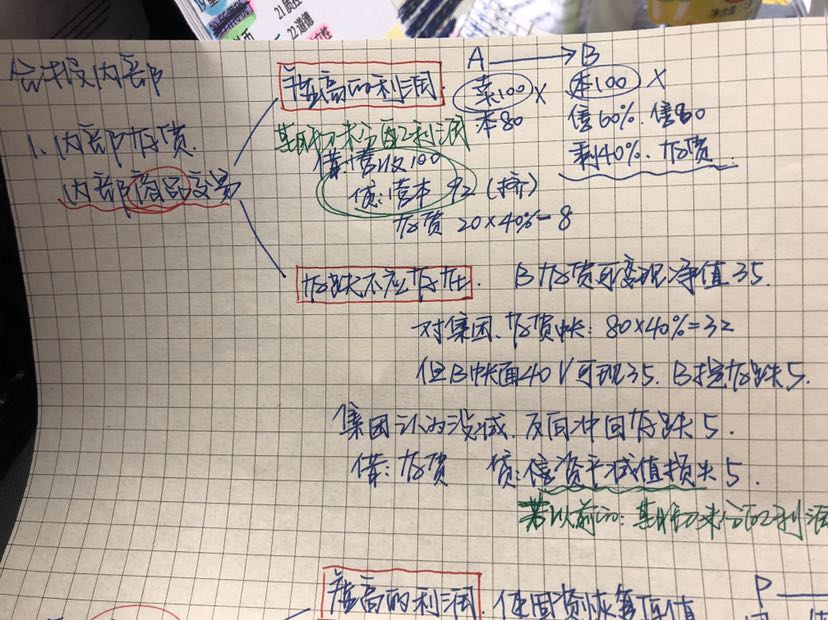 21质控
22道德
净含量
合报内部
1、内部存货
内部商品交易
虚高的利润
A → B
菜100 X
本80
本100 X
售60%.售80
剩40%.存货
期初未分配利润
借:营收100
贷:营本 92 (挤)
存货 20×40%=8
存跌不应存在.
B存货可变现净值35.
对集团.存货账:80×40%=32
但B账面40 V可现35. B提存跌5.
集团认为没减.反向冲回存跌5.
借:存货 贷:信资产减值损失5.
若以前的:期初未分配利润
虚高的利润.
使固资恢复原值
P